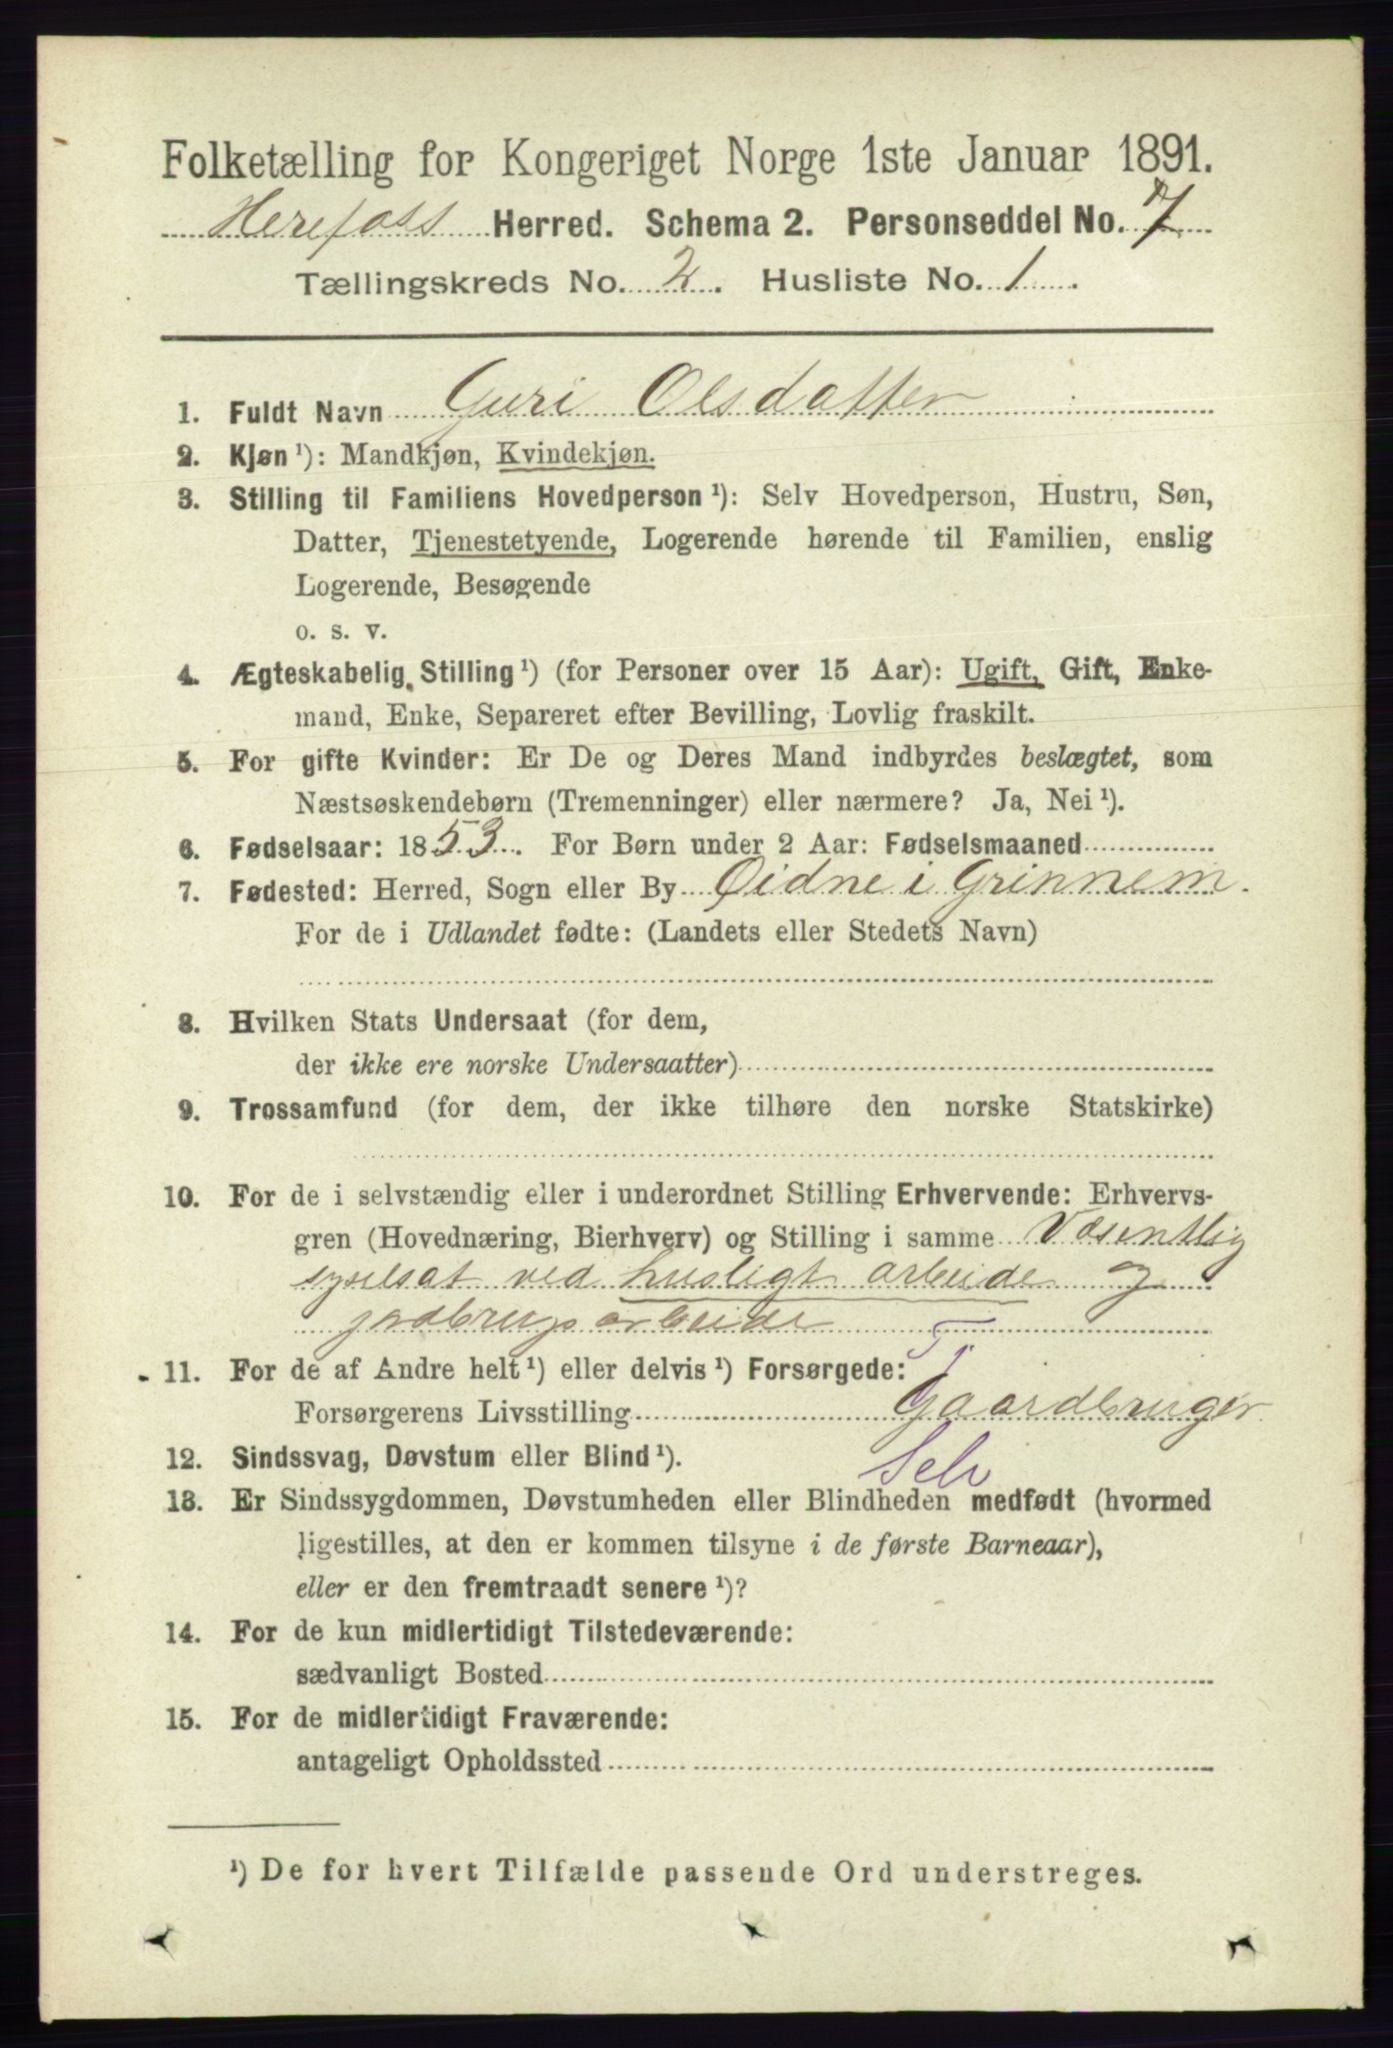 Folketælling for Kongeriget Norge 1ste Januar 1891.
Herefoss Herred. Schema 2. Personseddel No. 7
Tællingskreds No. 2. Husliste No. 1.
1. Fuldt Navn Guri Olsdatter
2. Kjøn ¹): Mandkjøn, Kvindekjøn.
3. Stilling til Familiens Hovedperson ¹): Selv Hovedperson, Hustru, Søn,
Datter, Tjenestetyende, Logerende hørende til Familien, enslig
Logerende, Besøgende
o. s. v.
4. Ægteskabelig Stilling ¹) (for Personer over 15 Aar): Ugift, Gift, Enke-
mand, Enke, Separeret efter Bevilling, Lovlig fraskilt.
5. For gifte Kvinder: Er De og Deres Mand indbyrdes beslægtet, som
Næstsøskendebørn (Tremenninger) eller nærmere? Ja, Nei ¹).
6. Fødselsaar: 1853. For Børn under 2 Aar: Fødselsmaaned
7. Fødested: Herred, Sogn eller By Øidne i Grinnem.
For de i Udlandet fødte: (Landets eller Stedets Navn)
8. Hvilken Stats Undersaat (for dem,
der ikke ere norske Undersaatter)
9. Trossamfund (for dem, der ikke tilhøre den norske Statskirke)
10. For de i selvstændig eller i underordnet Stilling Erhvervende: Erhvervs-
gren (Hovednæring, Bierhverv) og Stilling i samme Væsentlig
syselsat ved husligt arbeide og
jordbrugsarbeide
T
11. For de af Andre helt ¹) eller delvis ¹) Forsørgede:
Forsørgerens Livsstilling Gaardbruger
Selv
12. Sindssvag, Døvstum eller Blind ¹).
13. Er Sindssygdommen, Døvstumheden eller Blindheden medfødt (hvormed
ligestilles, at den er kommen tilsyne i de første Barneaar),
eller er den fremtraadt senere ¹)?
14. For de kun midlertidigt Tilstedeværende:
sædvanligt Bosted
15. For de midlertidigt Fraværende:
antageligt Opholdssted
¹) De for hvert Tilfælde passende Ord understreges.